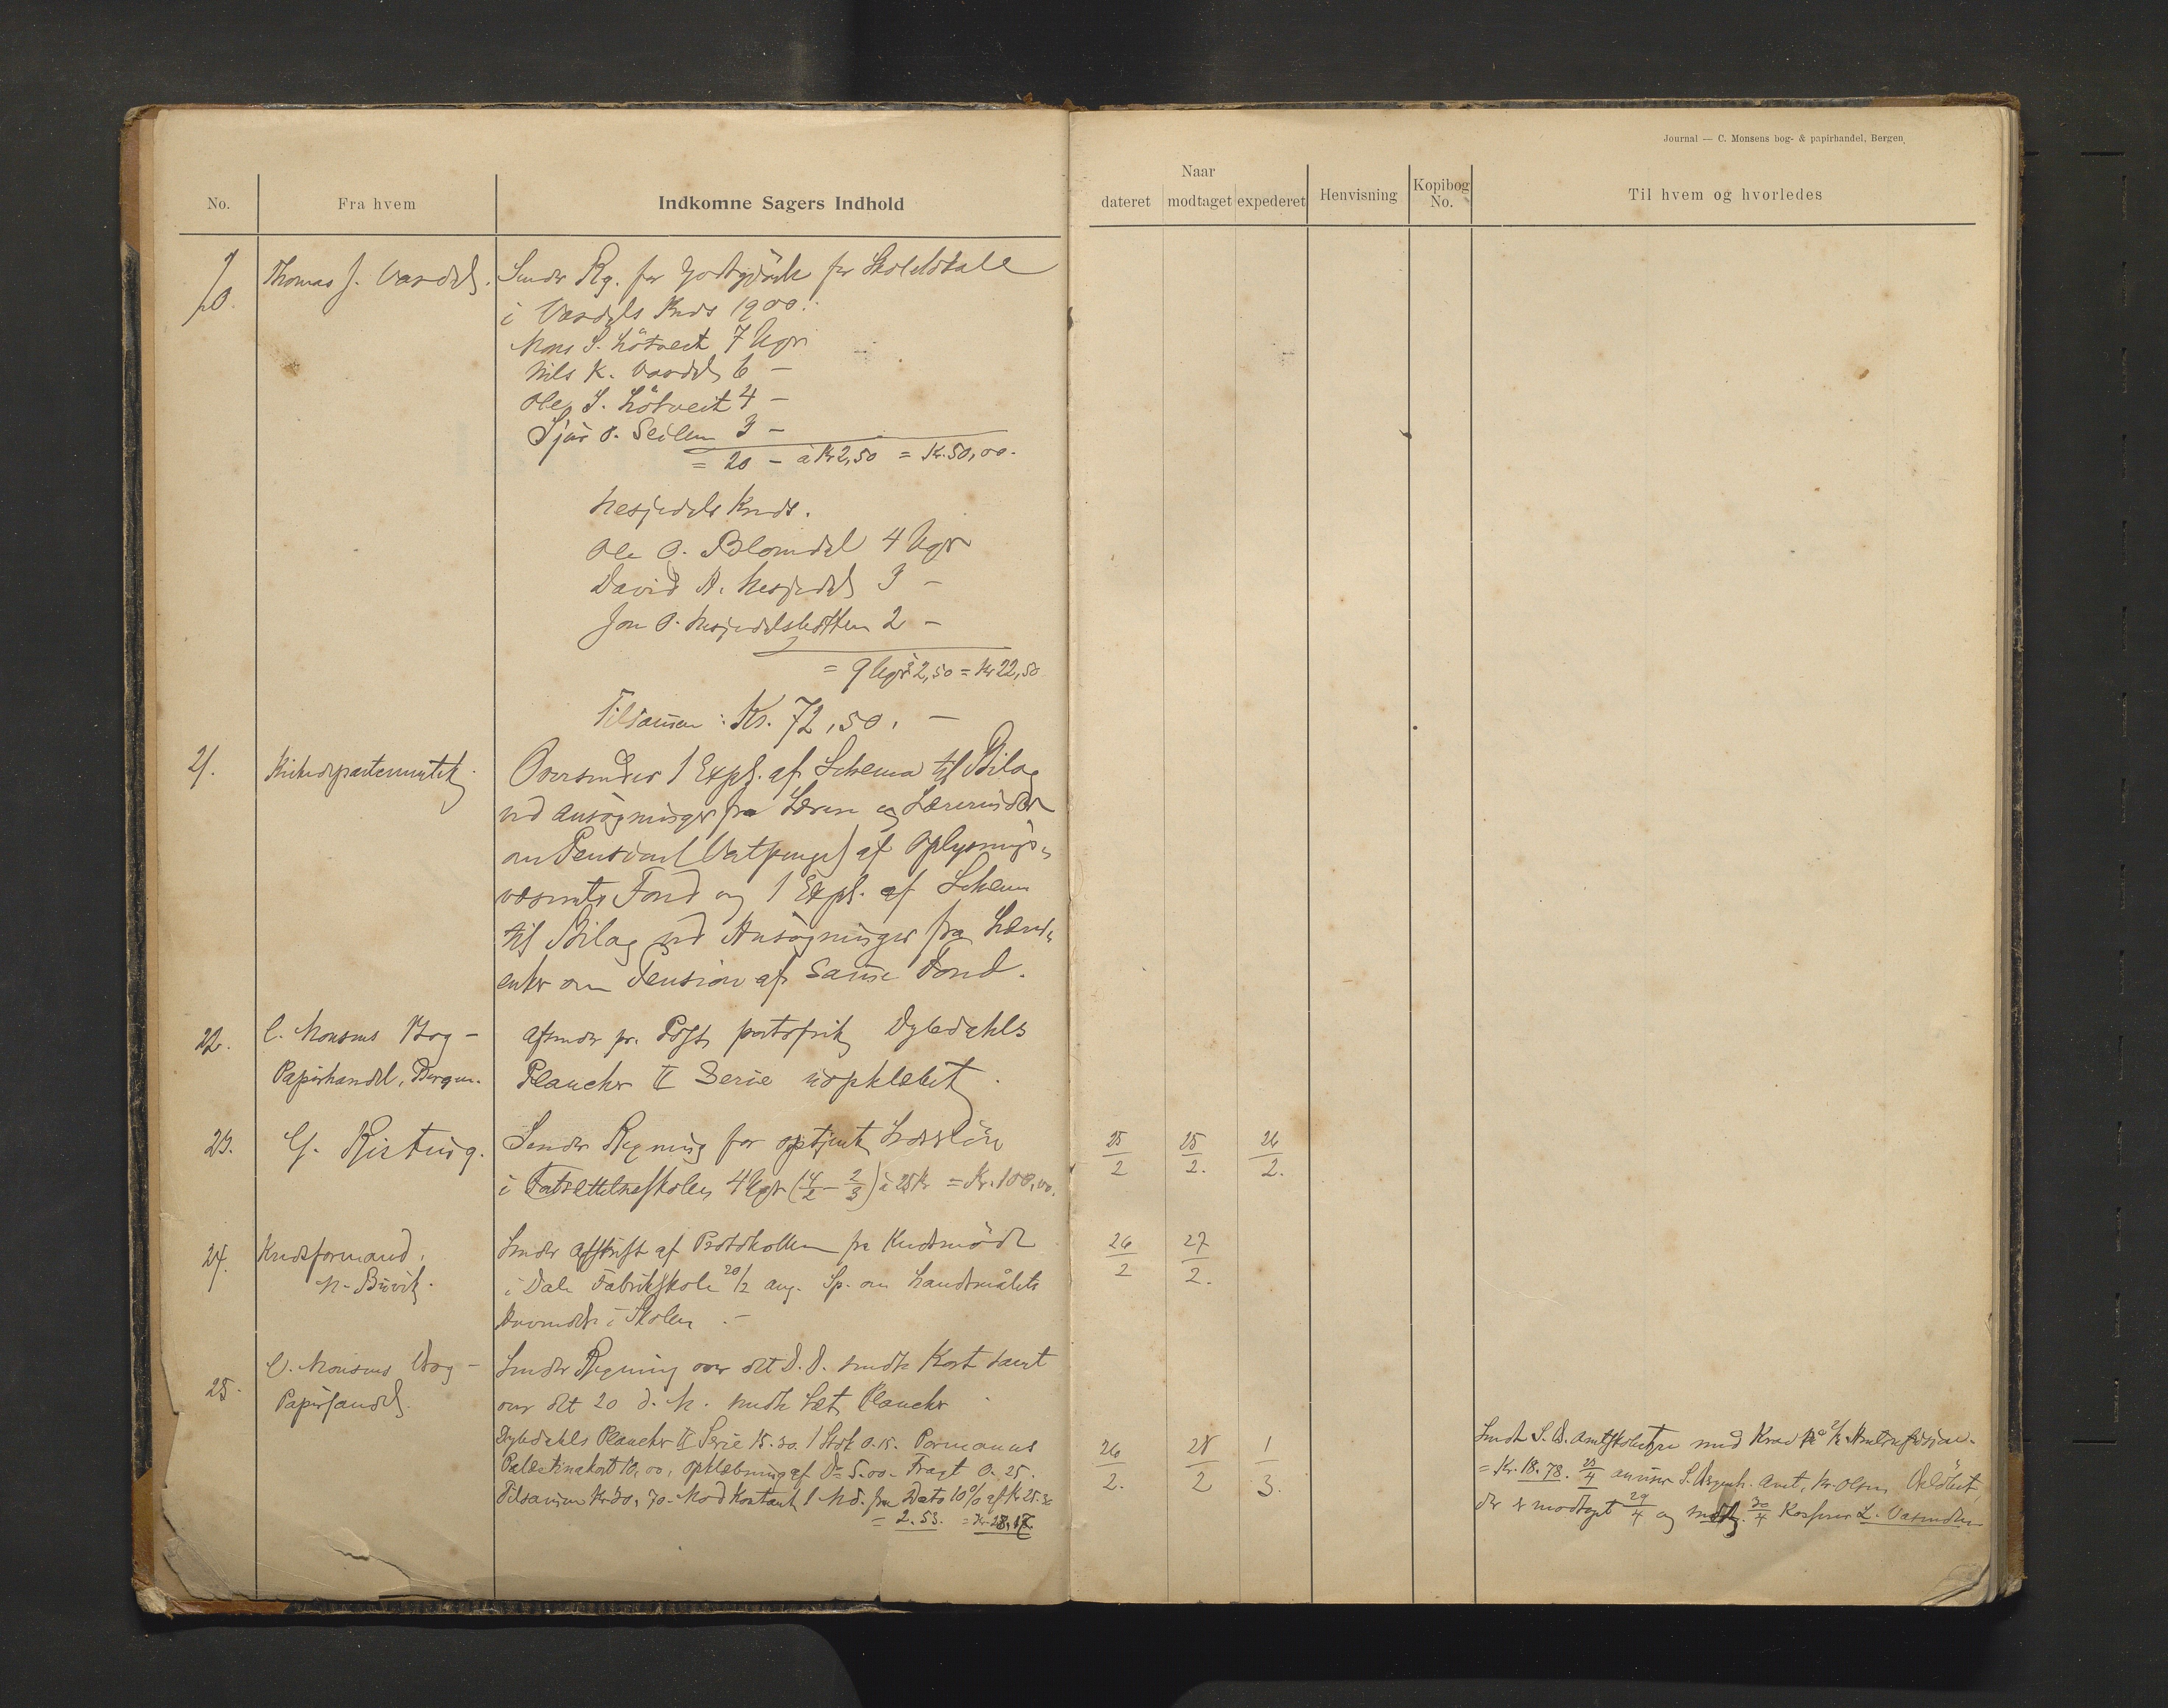 Journal — C. Monsens bog- & papirhandel, Bergen.
No. Fra hvem Indkomne Sagers Indhold
Naar
dateret modtaget expederet Henvisning Kopibog No. Til hvem og hvorledes
20. Thomas J. Vardal. Sender Rg. for Godtgjörelse for Skolelokale
i Vardals Kreds 1900:
Mons S. Lötveit 7 Uger
Nils K. Vardal 6 —
Ole S. Lötveit 4 —
O. 3 —
= 20 — à Kr 2,50 = Kr. 50,00.
Nesjedals Kreds.
Ole O. Blomdal 4 Uger
David A. Nesjedal 3 —
Jon O. 2 —
= 9 Uger à 2,50 = Kr 22,50
Tilsammen: Kr. 72,50. —
21. Kirkedepartementet. Oversender 1 Expl. af Schema til Bilag
ved Ansøgninger fra Lærere og Lærerinder
om Pension af Oplysnings-
væsenets Fond og 1 Expl. af Schema
til Bilag ved Ansøgninger fra Lærer-
enker om Pension af samme Fond.
22. C. Monsens Bog-
Papirhandel, Bergen.
Afsender pr. Post portofrit Dybdahls
Plancher II Serie uopklæbet.
23. Sender Regning for optjent Læreløn
i Fortsættelsesskolen 4 Uger (4/2 – 2/3) à 25 Kr = Kr. 100,00.
25/2 25/2. 26/2.
24. Kredsformand
N. Buvik.
Sender Afskrift af Protokollen fra Kredsmöde
i Dale Fabrikskole 20/2 ang. Sp. om Landsmålets
Anvendelse i Skolen. —
26/2 27/2.
25. C. Monsens Bog-
Papirhandel.
Sender Regning over det D. D. sendte Kort samt
over det 20 d. M. sendte Sæt Plancher.
Dybdahls Plancher II Serie 15.30. 1 Stok 0.15.
Palæstinakort 10,00, opklæbning af Do 5.00. Fragt 0.25.
Tilsammen Kr 30,70. Mod Kontant 1 Md. fra Dato 10% af Kr 25.30
= 2.53. = Kr. 28.17
26/2. 28/2 1/3.
Sendt S. B. Amtsskolestyre med Krav på
= Kr. 18.78. 25/4 anviser
der er modtaget 29/4 og sendt 30/4 Kasserer L.